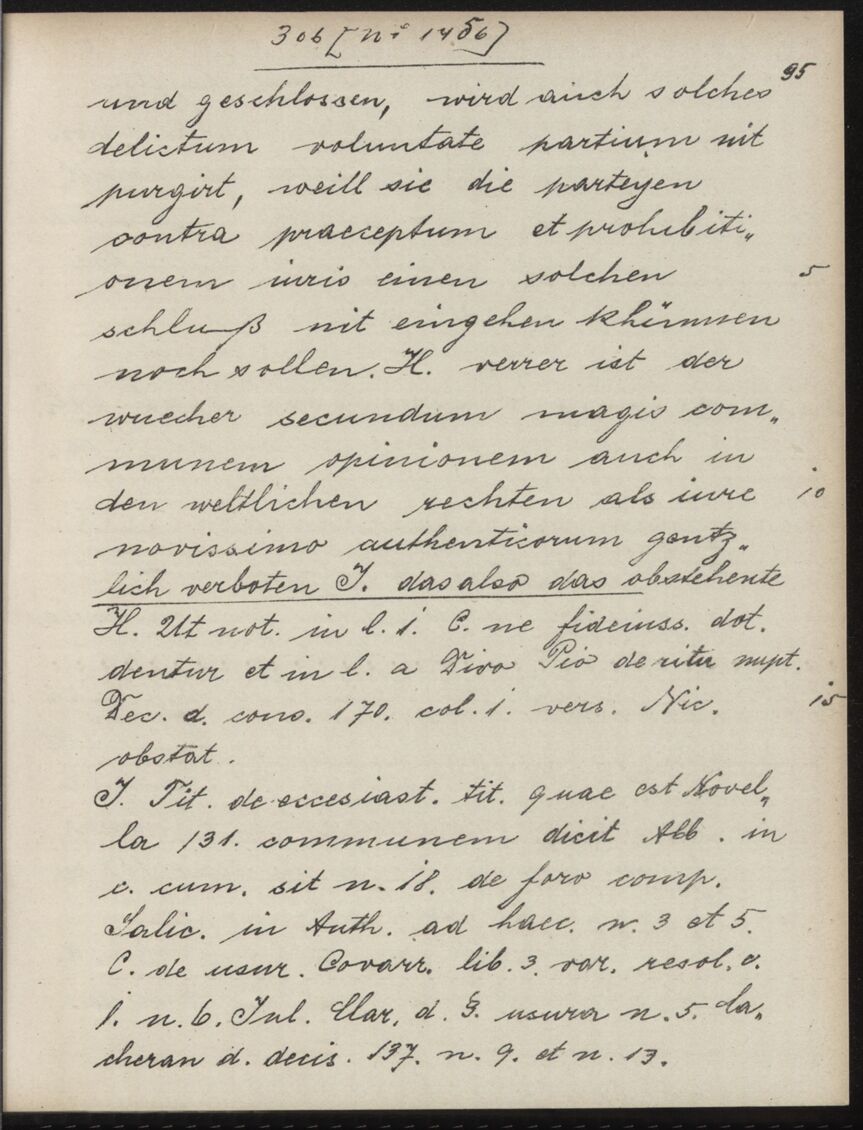 306 [nº 1456]
95
und geschlossen, wird auch solches
delictum voluntate partium nit
purgirt, weill sie die parteyen
contra praeceptum et prohibiti„
onem iuris einen solchen 5
schluß nit eingehen khünnen
noch sollen. H. verrer ist der
wuecher secundum magis com„
munem opinionem auch in
den weltlichen rechten als iure 10
novissimo authenticorum gentz„
lich verboten I. das also das obstehente
H. Ut not. in l. 1. C. ne fideiuss. dot.
dentur et in l. a Divo Pio de ritu nupt.
Dec. d. cons. 170. col. 1. vers. Nic. 15
obstat.
I. Tit. de eccesiast. tit. quae est Novel„
la 131. communem dicit Abb. in
c. cum. sit n. 18. de foro comp.
Salic. in Auth. ad haec. n. 3 et 5.
C. de usur. Covarr. lib. 3. var. resol. c.
1. n. 6. Jul. Clar. d. §. usura n. 5. Ca„
cheran d. decis. 137. n. 9. et n. 13.